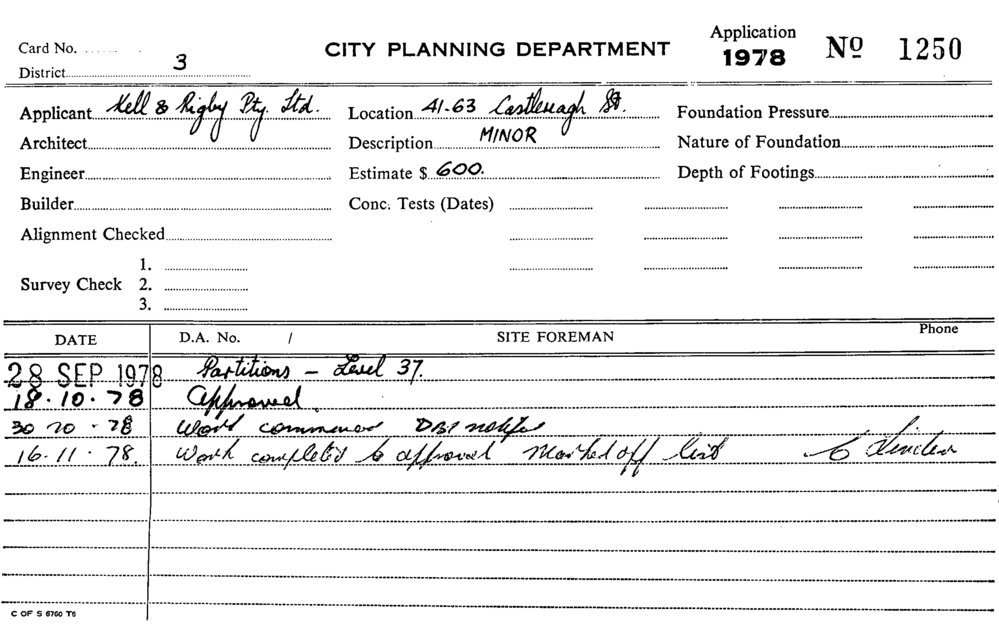 Card No. CITY PLANNING DEPARTMENT Application 1978 Nº 1250
District 3
Applicant Kell & Rigby Pty. Ltd. Location 41-63 Castlereagh St. Foundation Pressure
Architect Description MINOR Nature of Foundation
Engineer Estimate $ 600. Depth of Footings
Builder Conc. Tests (Dates)
Alignment Checked
1.
Survey Check 2.
3.
DATE D.A. No. / SITE FOREMAN Phone
28 SEP 1978 Partitions - Level 37.
18.10.78 Approved.
30 10.78 Work commenced
16.11.78. Work completed to approval Marked off list
C OF S 6760 T5